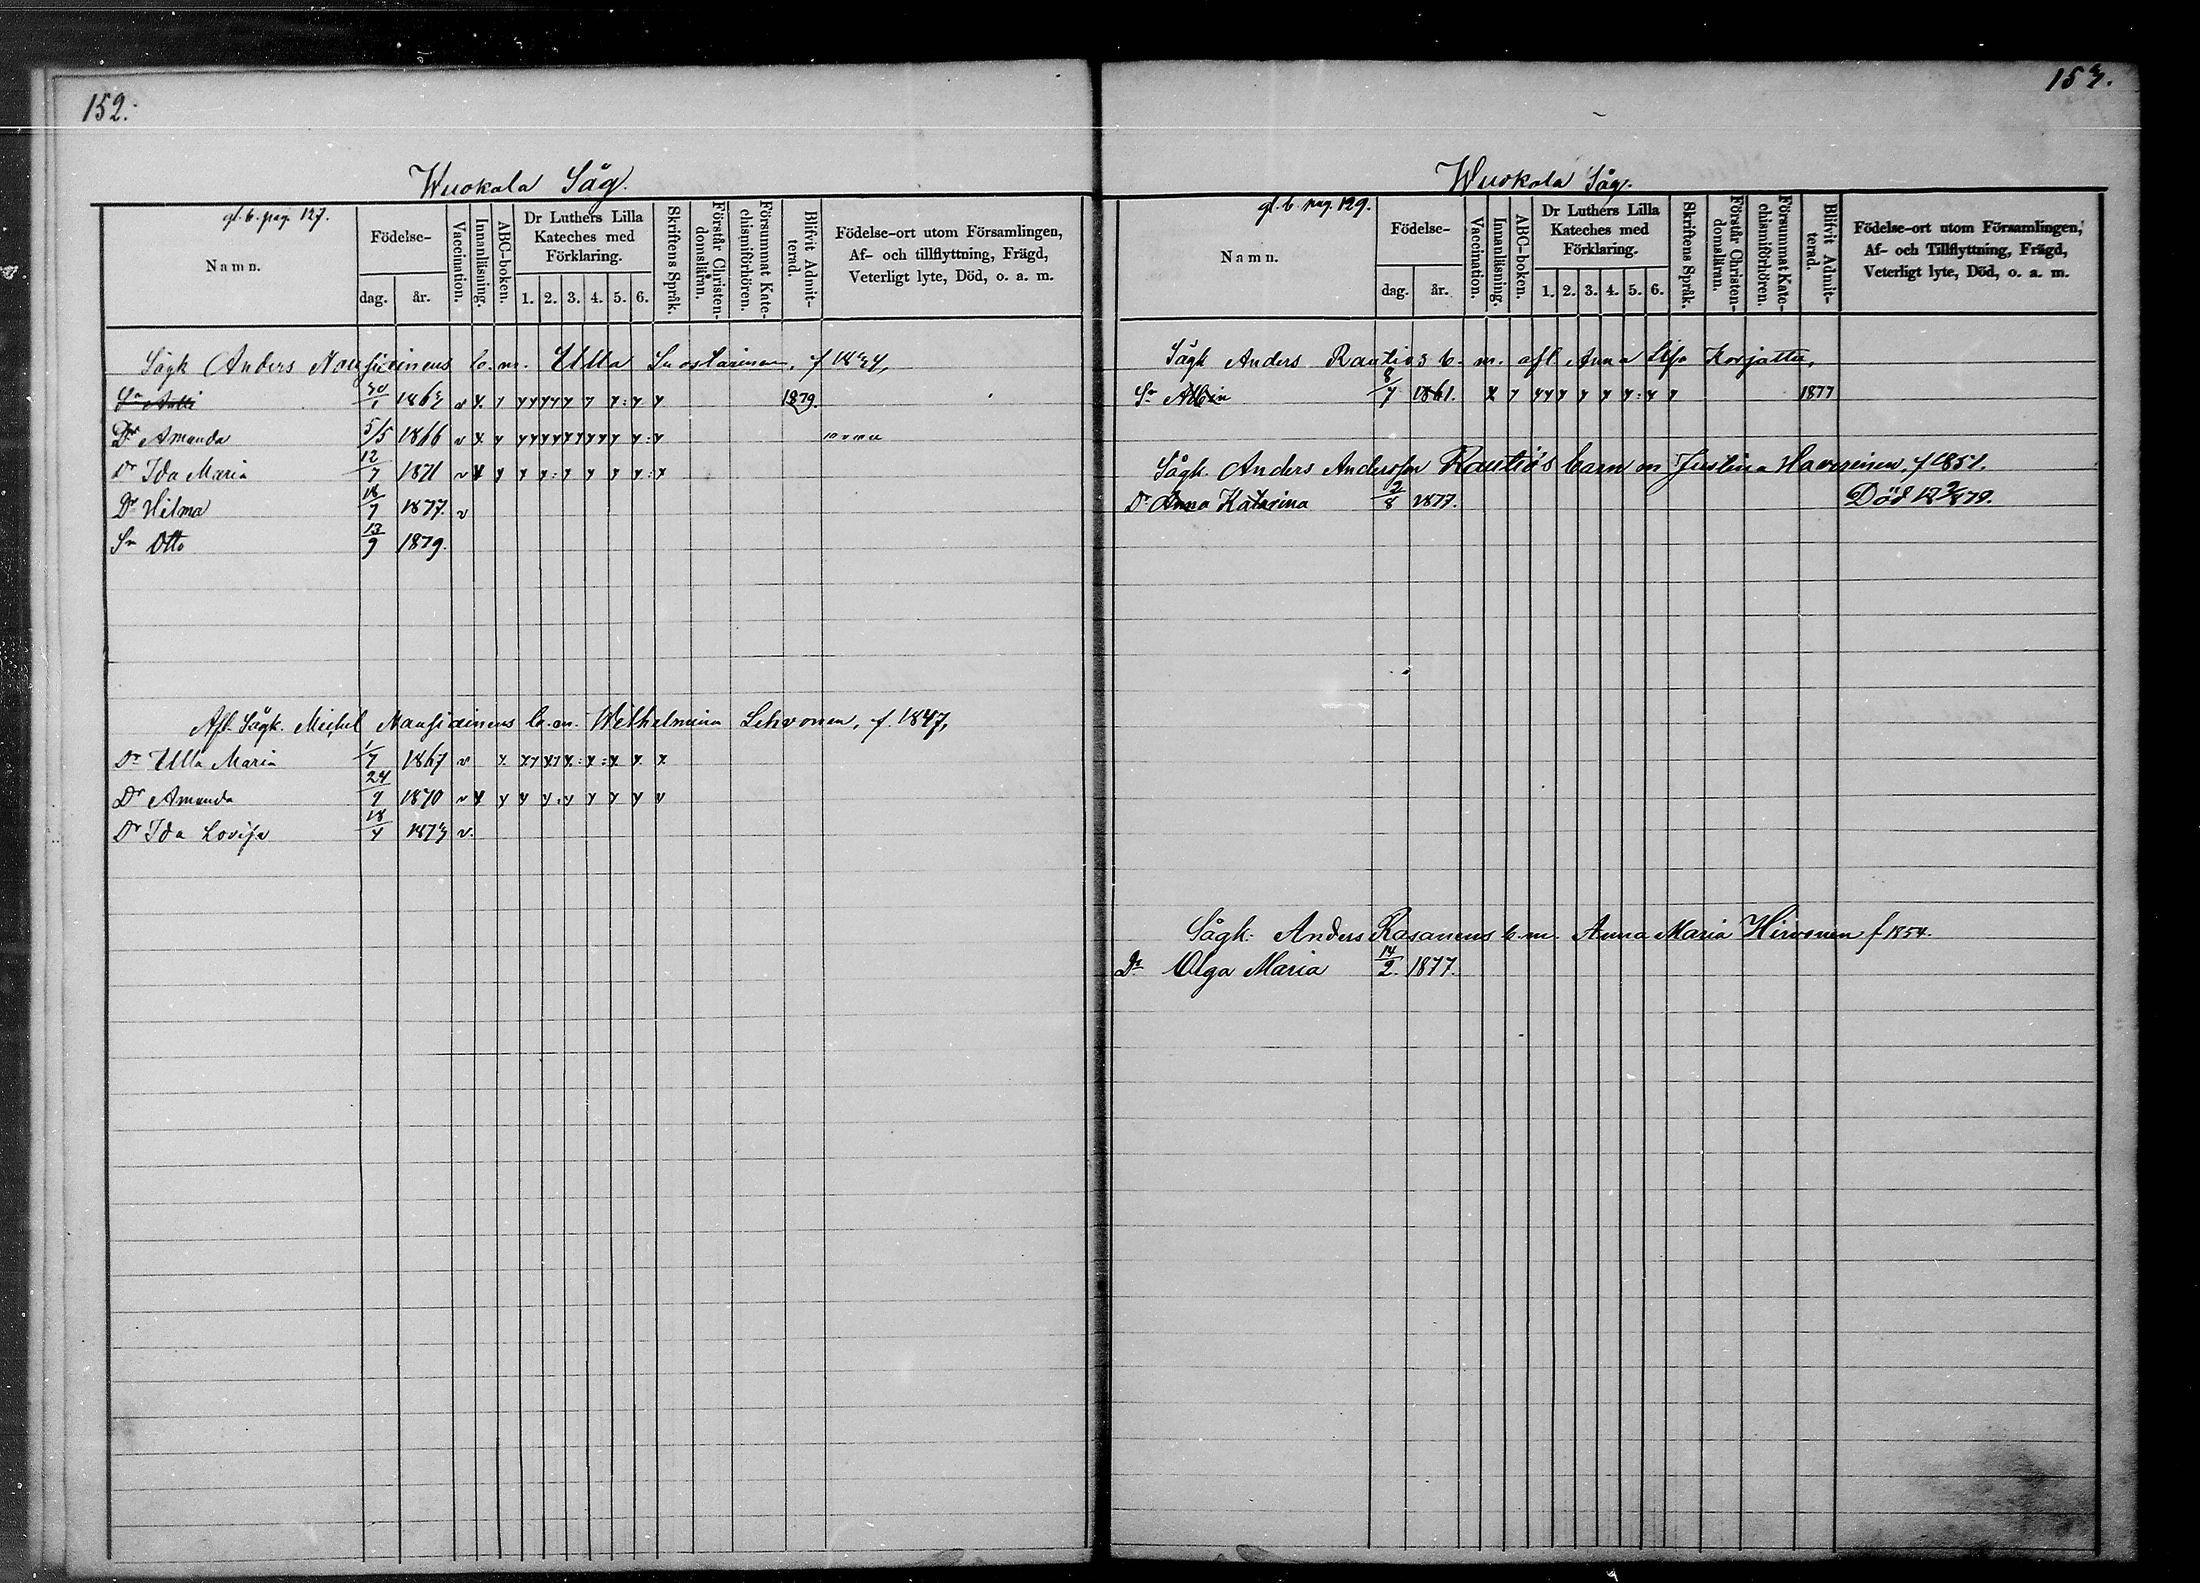 152.
Wuokala Såg.
gl. b. pag. 127.
Namn.
Födelse-
dag.
år.
Vaccination.
Innanläsning.
ABC-boken.
Dr Luthers Lilla
Kateches med
Förklaring.
1. 2. 3. 4. 5. 6.
Skriftens Språk.
Förstår Christen-
domsläran.
Försummat Kate-
chismiförhören.
Blifvit Admit-
terad.
Födelse-ort utom Församlingen,
Af- och tillflyttning, Frägd,
Veterligt lyte, Död, o. a. m.
Sågk Anders b. m. Ulla
Sn Antti 1863 v x y y y y y y y y : y y 1879.
Dr Amanda 5/5 1866 v x y y y y y y y y y y : y
Dr Ida Maria 12/7 1871 v x y y y : y y y y : y
Dr Hilma 18/7 1877. v
Sn Otto 13/9 1879.
Afl. Sågk. Michel b. m. Wilhelmina Lehvonen, f 1847,
Dr Ulla Maria 1/7 1867 v
Dr Amanda 24/9 1870 v x y y y . y y y y y
Dr Ida Lovisa 18/4 1873 v.
153.
Wuokala Såg.
gl. b. pag. 129.
Namn.
Födelse-
dag.
år.
Vaccination.
Innanläsning.
ABC-boken.
Dr Luthers Lilla
Kateches med
Förklaring.
1. 2. 3. 4. 5. 6.
Skriftens Språk.
Förstår Christen-
domsläran.
Försummat Kate-
chismiförhören.
Blifvit Admit-
terad.
Födelse-ort utom Församlingen,
Af- och Tillflyttning, Frägd,
Veterligt lyte, Död, o. a. m.
Sågk Anders Rautios b. m. afl Anna Lisa
Sn Albin 8/7 1861. x y y y y y y y : y y 1877
Sågk. Anders Andersson Rautio's barn m Justina f 1851.
Dr Anna Katarina 2/8 1877. Död
Sågk. Anders Rasanens b. m. Anna Maria Hirvonen f 1854.
Dr Olga Maria 14/2. 1877.